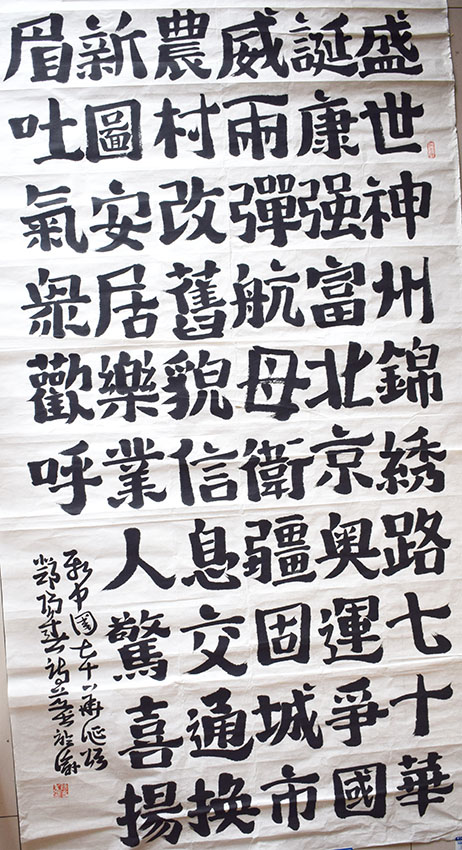 盛世神州錦綉路七十華
誕康强富北京奥運爭國
威兩彈航母衛疆固城市
農村改舊貌信息交通換
新圖安居樂業人驚喜揚
眉吐氣衆歡呼
中國七十